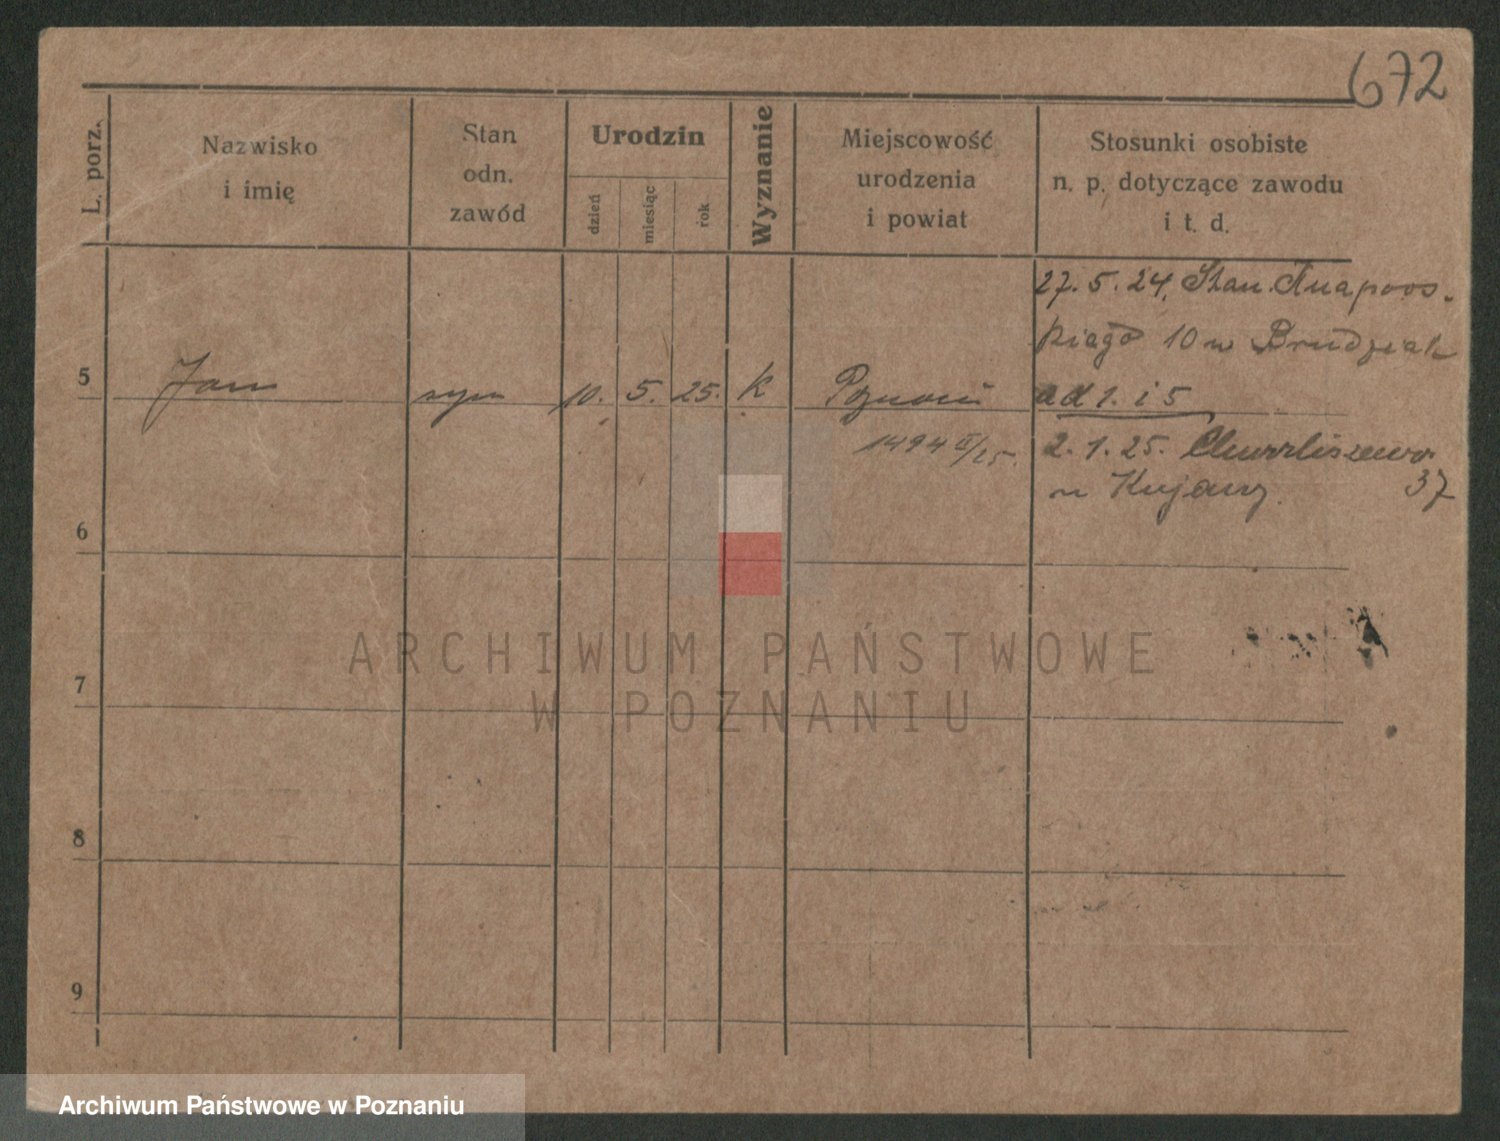 672
L. porz.
Nazwisko
i imię
Stan
odn.
zawód
Urodzin
dzień
miesiąc
rok
Wyznanie
Miejscowość
urodzenia
i powiat
Stosunki osobiste
n. p. dotyczące zawodu
i t. d.
27. 5. 24. Stan. Knapows-
kiego 10 u
5 Jan syn 10. 5. 25. k Poznań ad 1. i 5
1494 II/25.
2. 1. 25. Chwaliszewo
37
u Kujawy.
6
7
8
9
ARCHIWUM PAŃSTWOWE
W POZNANIU
Archiwum Państwowe w Poznaniu